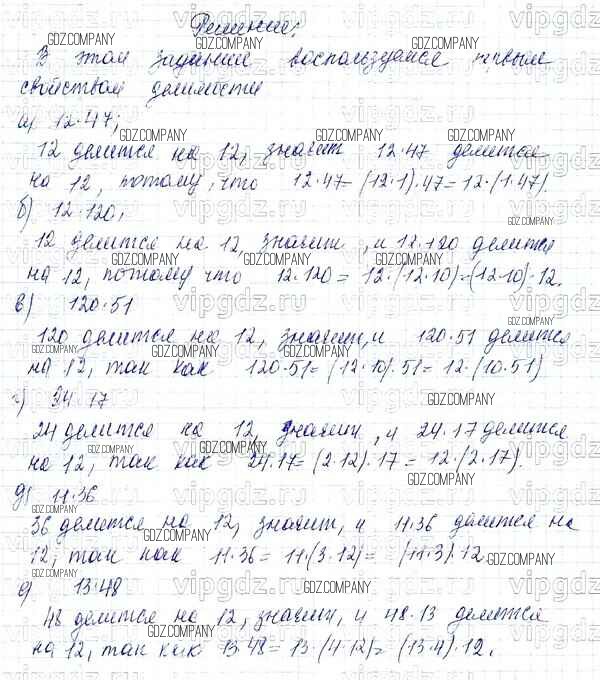 Решение:
В этом задании воспользуемся первым
свойством делимости
а) 12·47;
12 делится на 12, значит 12·47 делится
на 12, потому, что 12·47=(12·1)·47=12·(1·47).
б) 12·120;
12 делится на 12, значит, и 12·120 делится
на 12, потому что 12·120=12·(12·10)=(12·10)·12.
в) 120·51
120 делится на 12, значит, и 120·51 делится
на 12, так как 120·51=(12·10)·51=12·(10·51)
г) 24·17
24 делится на 12, значит, и 24·17 делится
на 12, так как 24·17=(2·12)·17=12·(2·17).
д) 11·36
36 делится на 12, значит, и 11·36 делится на
12, так как 11·36=11·(3·12)=(11·3)·12.
е) 13·48
48 делится на 12, значит, и 48·13 делится
на 12, так как 13·48=13·(4·12)=(13·4)·12.
GDZ.COMPANY
vipgdz.ru